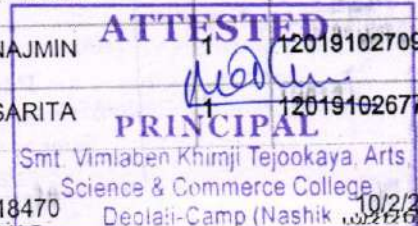 ATTESTED
NAJMIN 1 12019102709
SARITA 1 12019102677
PRINCIPAL
Smt. Vimlaben Khimji Tejookaya, Arts
Science & Commerce College
18470 Deolali-Camp (Nashik 10/2/2